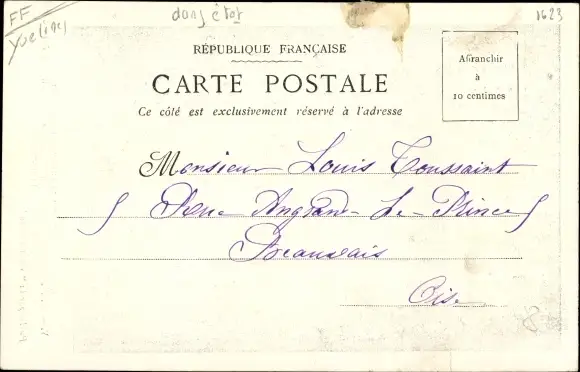 FF
Yvelines
dans état
1623
RÉPUBLIQUE FRANÇAISE
CARTE POSTALE
Ce côté est exclusivement réservé à l'adresse
Affranchir
à
10 centimes
Monsieur Louis Toussaint
5 Rue Angrand-Le-Prince 5
Beauvais
Oise
8